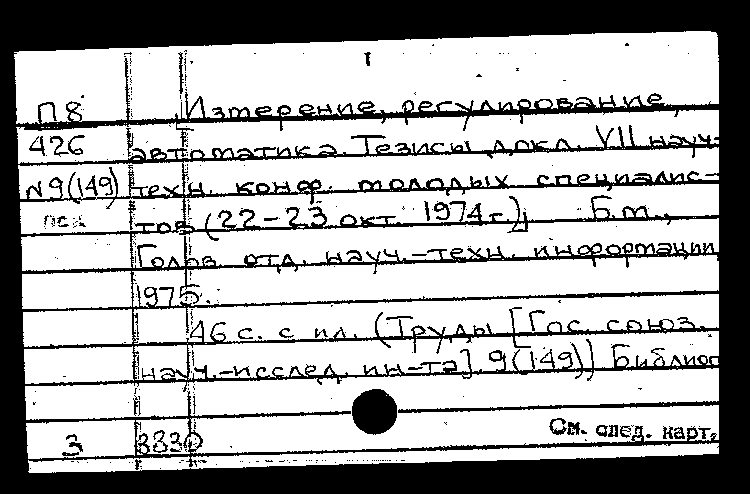 I
П8 Измерение, регулирование,
426 автоматика. Тезисы докл. VII науч.-
N9(149) техн. конф. молодых специалис-
тов (22-23 окт. 1974г.)] Б.м.,
Голов. отд. науч.-техн. информации,
1975.
46 с. с ил. (Труды [Гос. союз.
науч.-исслед. ин-та]. 9(149)) Библиог
3 3830 См. след. карт.